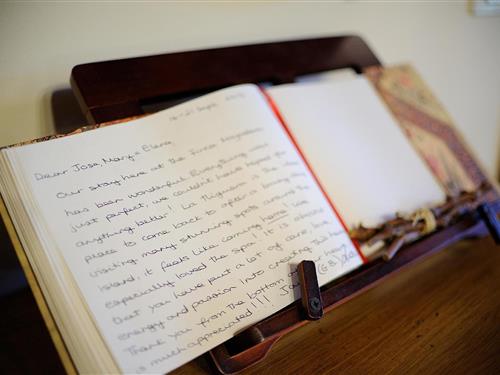 14-21 Sept
Dear Jose, Mary + Elena,
Our stay here at the Finca
has been wonderful. Everything was
just perfect, we couldn't have hoped for
anything better! La is the ideal
place to come back to after a long day
visiting many stunning spots around the
island; it feels like coming home! We
especially loved the spa! It is obvious
that you have put a lot of care, love,
energy and passion into creating this
Thank you from the bottom of our hearts
is much appreciated!!! (GB)